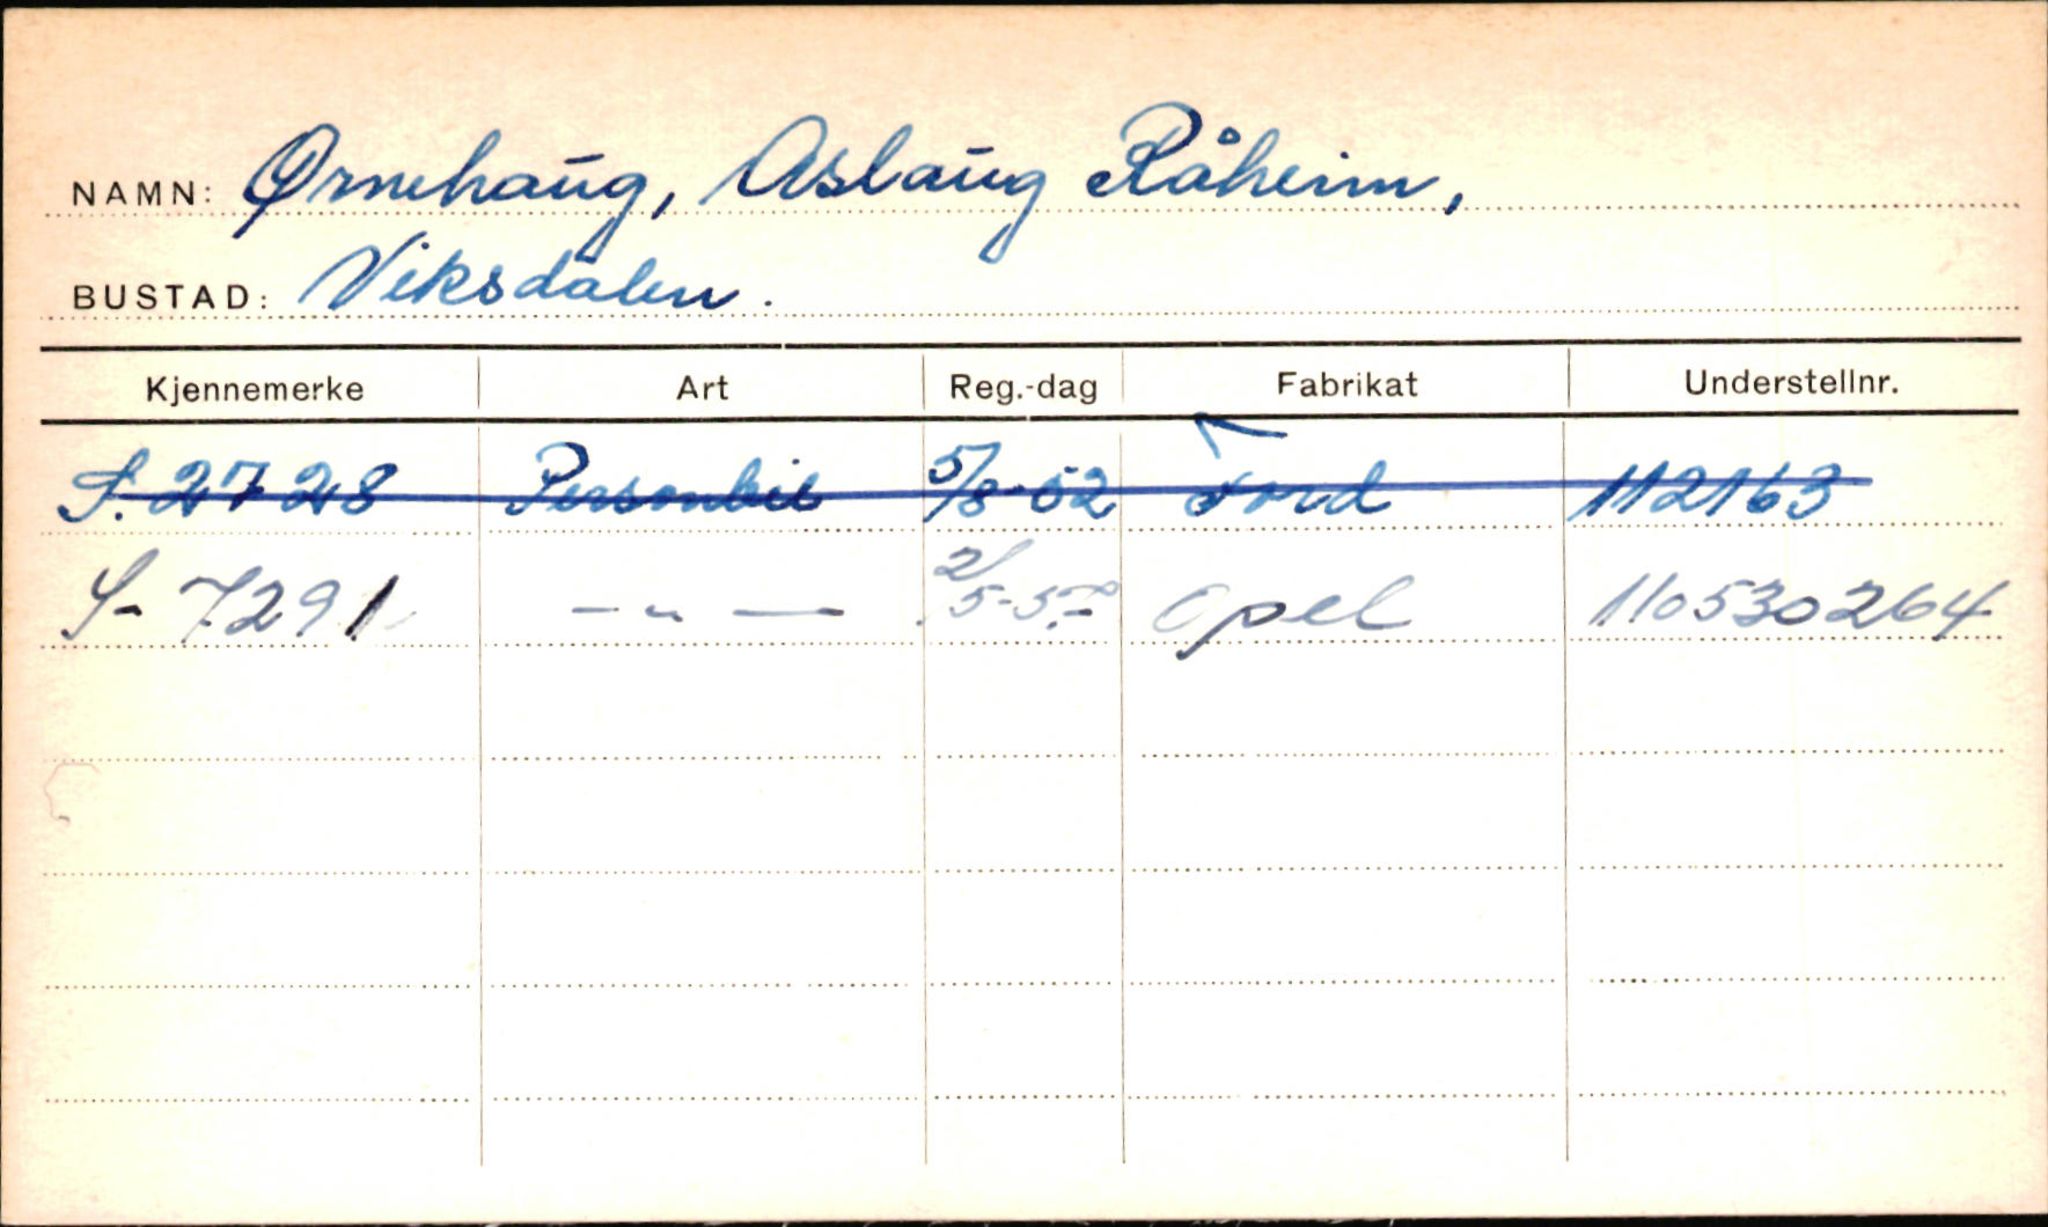 NAMN: Ørnehaug, Aslaug Råheim,
BUSTAD: Viksdalen.
Kjennemerke Art Reg.-dag Fabrikat Understellnr.
S. 2728 Personbil 5/8-52 Ford 112163
S- 7291 — " — Opel 110530264